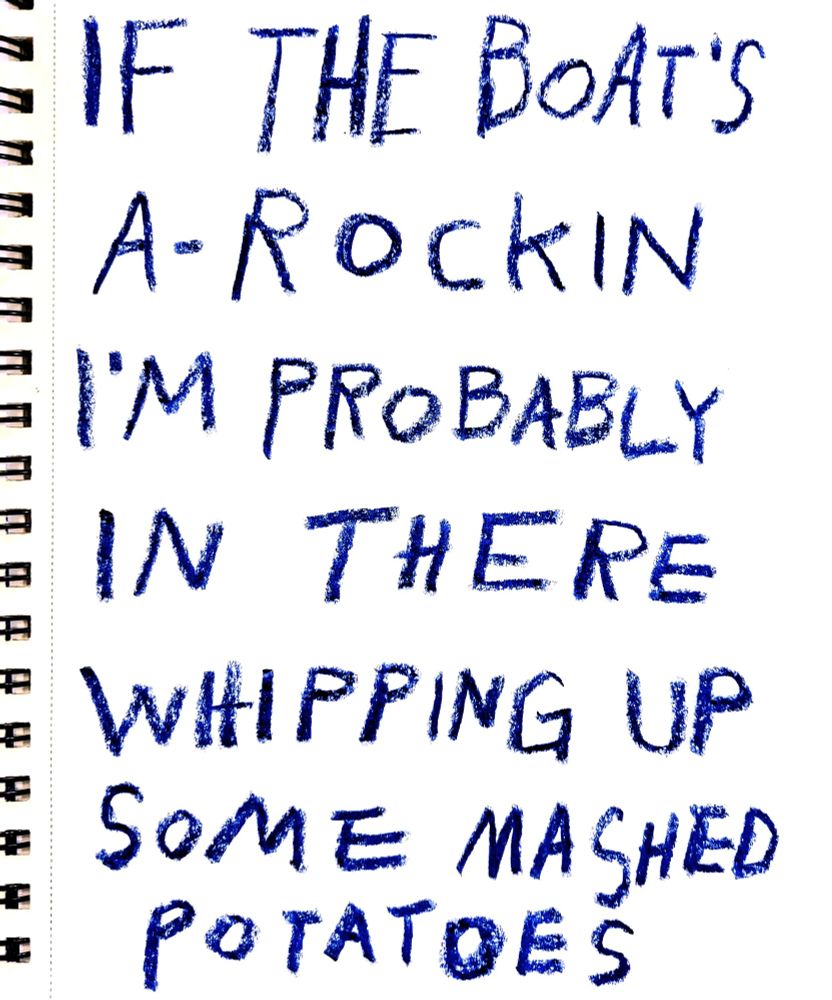 IF THE BOAT'S
A-ROCKIN
I'M PROBABLY
IN THERE
WHIPPING UP
SOME MASHED
POTATOES